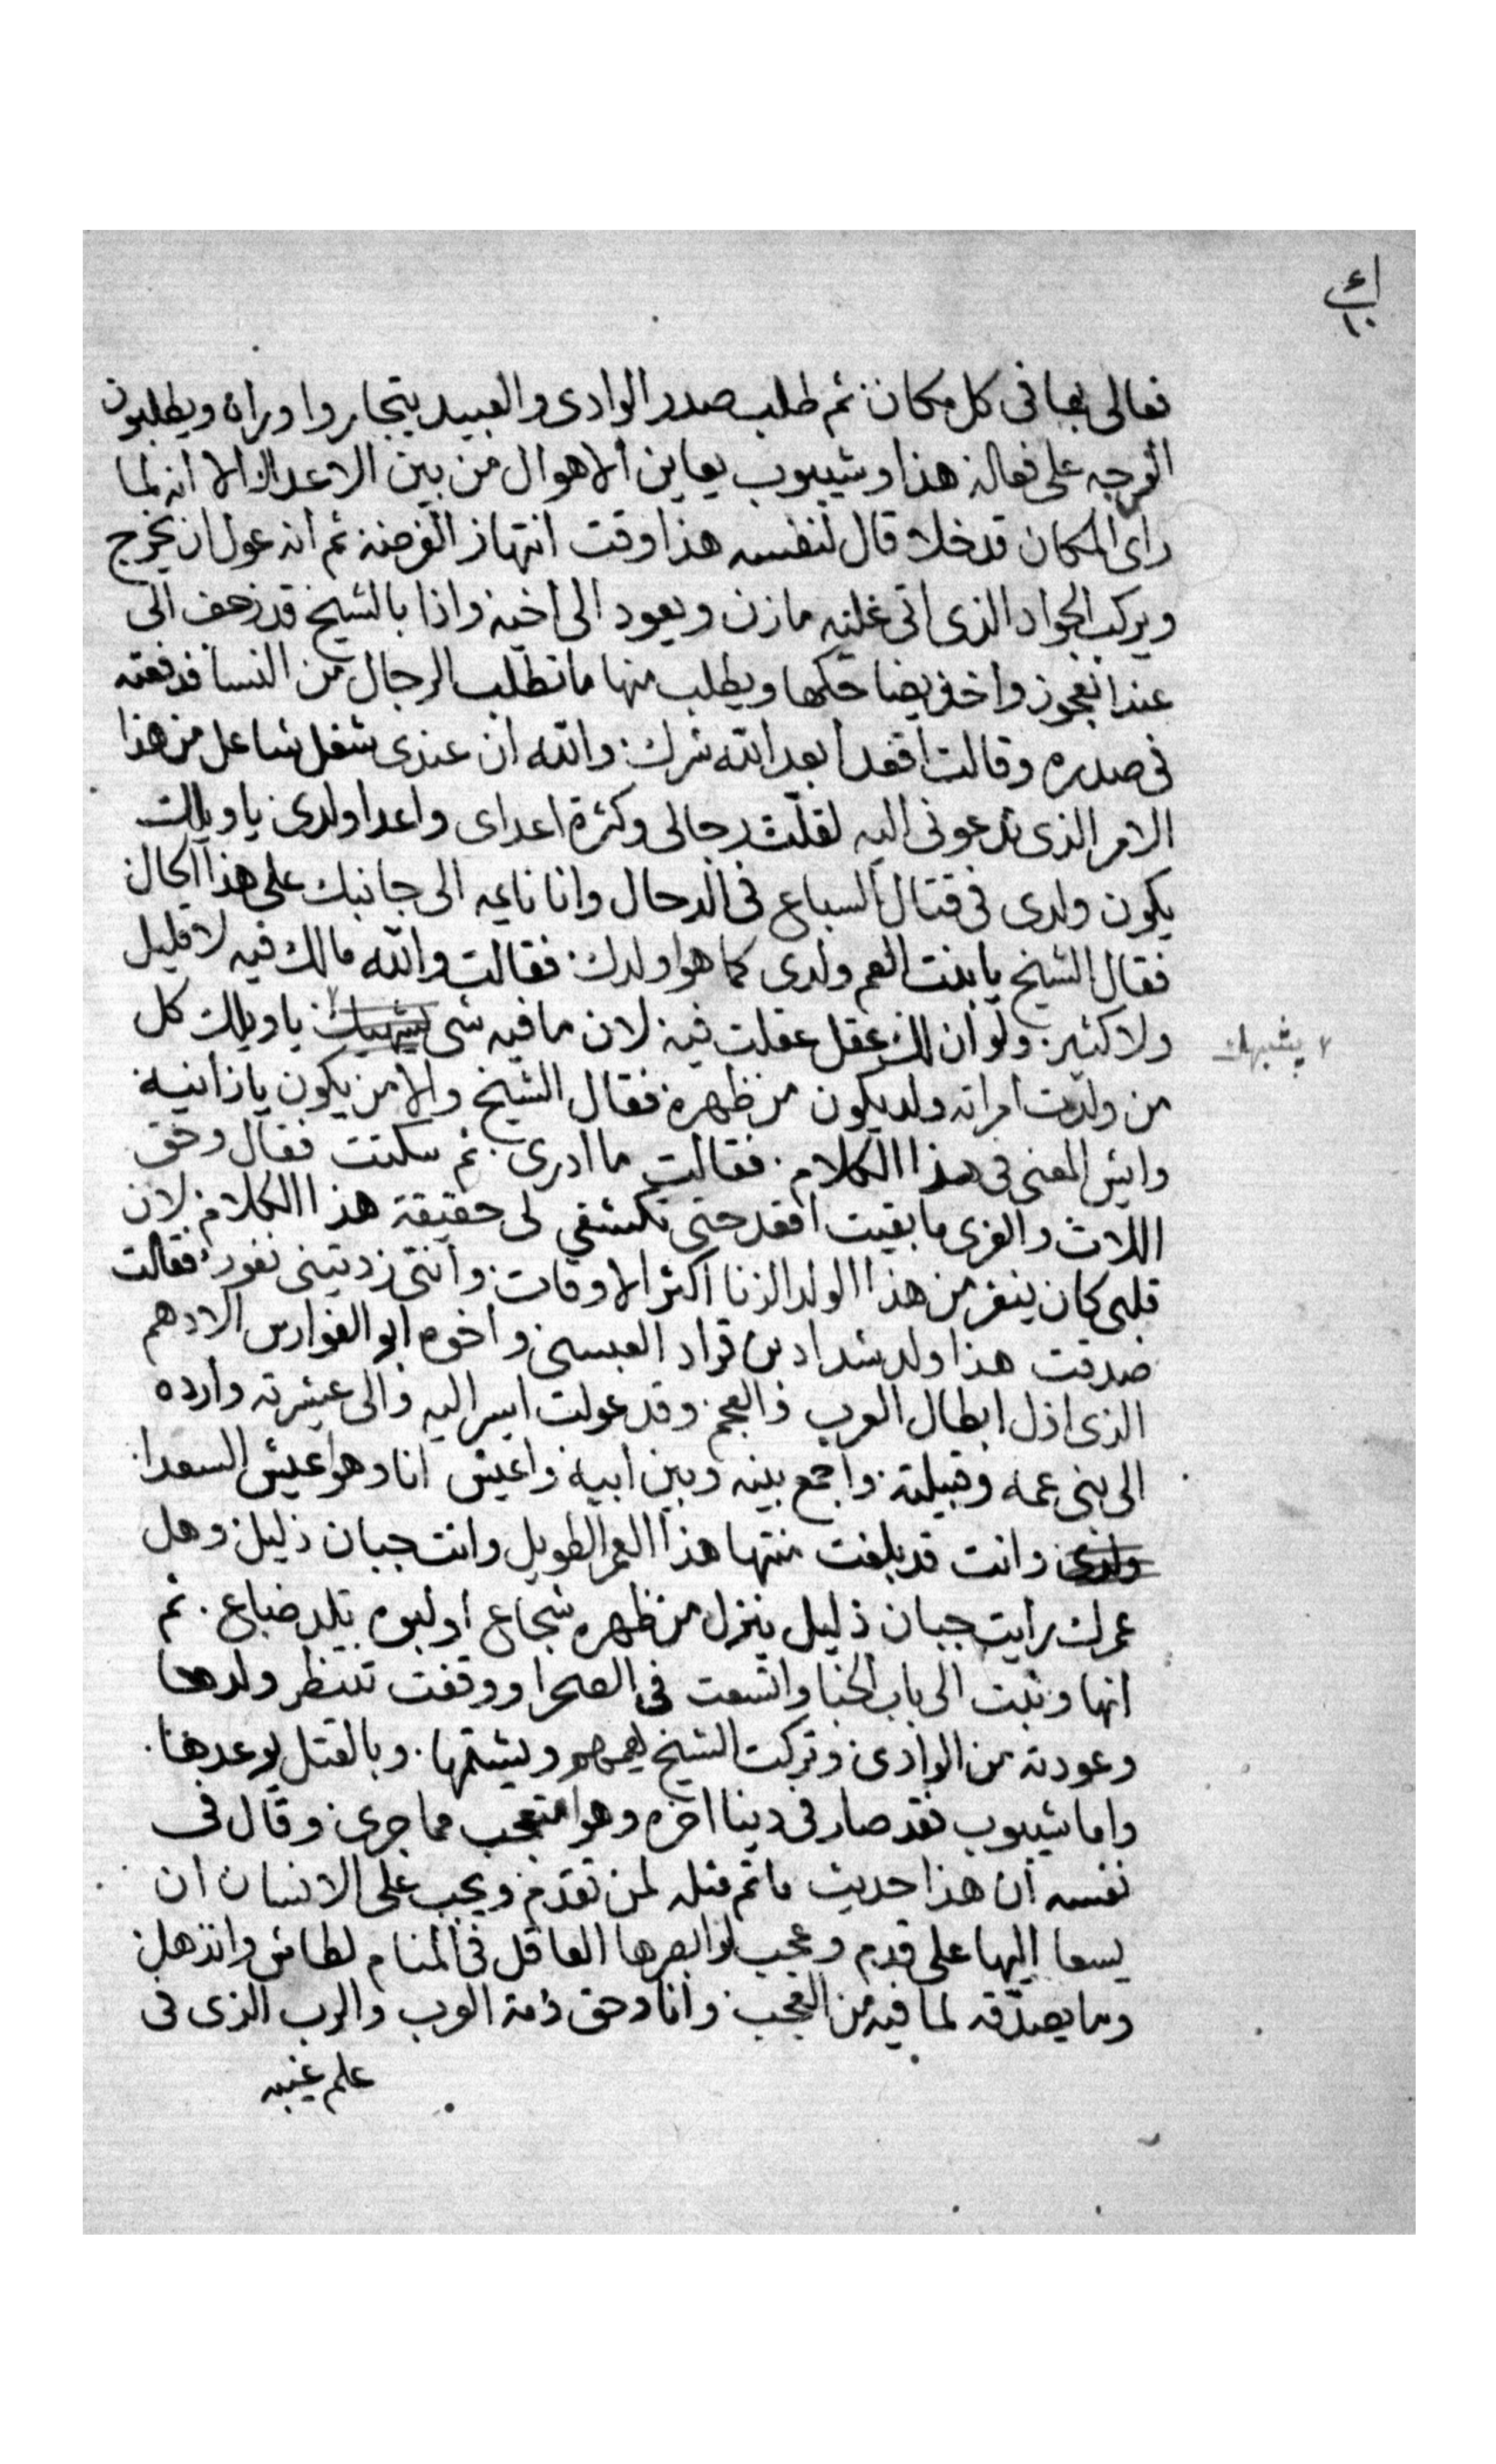 فعالى بها فى كل مكان ثم طلب صدر الوادى والعبيد يتجاروا وراه ويطلبون
الفرجه على فعاله هذا وشيبوب يعاين الاهوال من بين الاعدال الا انه لما
راى المكان قد خلا قال لنفسه هذا وقت انتهاز الفرصه ثم انه عول ان يخرج
ويركب الجواد الذى اتى عليه مازن ويعود الى اخيه واذا بالشيخ قد زحف الى
عند العجوز واخذ يضاحكها ويطلب منها ما تطلب الرجال من النسا فدفعته
فى صدره وقالت اقعد ابعد الله شرك والله ان عندى شغل شاغل من هذا
الامر الذى تدعونى اليه لقلت رجالى وكثرة اعداى واعدا ولدى يا ويلك
يكون ولدى فى قتال السباع فى الدحال وانا نايمه الى جانبك على هذا الحال
فقال الشيخ يا بنت العم ولدى كما هوا ولدك فقالت والله مالك فيه لا قليل
ولا كثير ولو ان لك عقل عقلت فيه لان ما فيه شى يشبهك يا ويلك كل
يشبهك
من ولدت امراته ولد يكون من ظهره فقال الشيخ والا من يكون يا زانيه
وايش المعنى فى هذا الكلام فقالت ما ادرى ثم سكتت فقال وحق
اللات والعزى ما بقيت اقعد حتى تكشفي لى حقيقة هذا الكلام لان
قلبى كان ينفر من هذا الولد الزنا اكثر الاوقات وانتى زدتينى نفور فقالت
صدقت هذا ولد شداد بن قراد العبسى واخوه ابو الفوارس الادهم
الذى اذل ابطال العرب والعجم وقد عولت اسير اليه والى عشيرته وارده
الى بنى عمه وقبيلته واجمع بينه وبين ابيه واعيش انا وهو اعيش السعدا
ولدى وانت قد بلغت منتها هذا العمر الطويل وانت جبان ذليل وهل
عمرك رايت جبان ذليل ينزل من ظهره شجاع او لبوه تلد ضباع ثم
انها وثبت الى باب الخبا واتسعت فى الصحرا ووقفت تنتظر ولدها
وعودته من الوادى وتركت الشيخ يهمهم ويشتمها وبالقتل يوعدها
واما شيبوب فقد صار فى دينا اخره وهوا متعجب مما جرى وقال فى
نفسه ان هذا حديث ما تم مثله لمن تقدم ويجب على الانسان ان
يسعا اليها على قدم وعجب لو ابصرها العاقل فى المنام لطاش وانذهل
وما يصدقه لما فيه من العجب وانا وحق ذمة العرب والرب الذى فى
علم غيبه